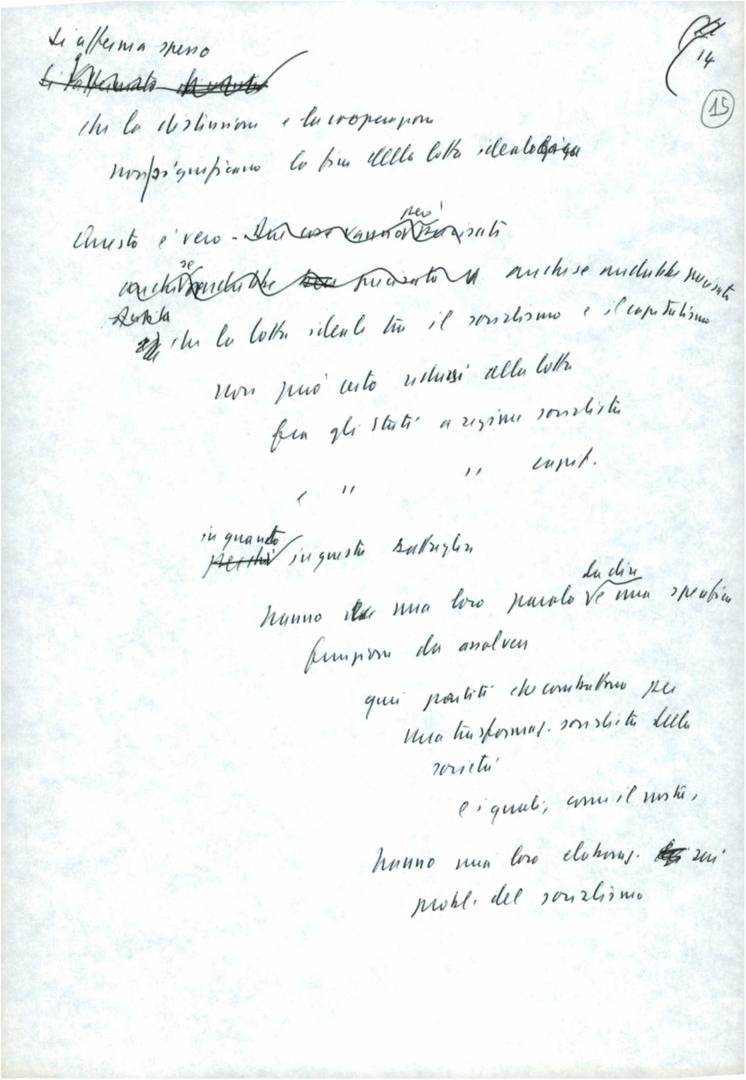 22
14
15
Si afferma spesso
che la distensione e la cooperazione
non significano la fine della lotta ideologica
Questo è vero - Due cose vanno però precisate
anche se andrebbe precisato anche se andrebbe precisato
subito
che la lotta ideale tra il socialismo e il capitalismo
non può certo ridursi alla lotta
fra gli Stati a regime socialista
e " " capit.
in quanto
perché in questa battaglia
hanno una loro parola da dire e una specifica
funzione da assolvere
quei partiti che combattono per
una trasformaz. socialista della
società
e i quali, come il nostro,
hanno una loro elaboraz. sui
probl. del socialismo